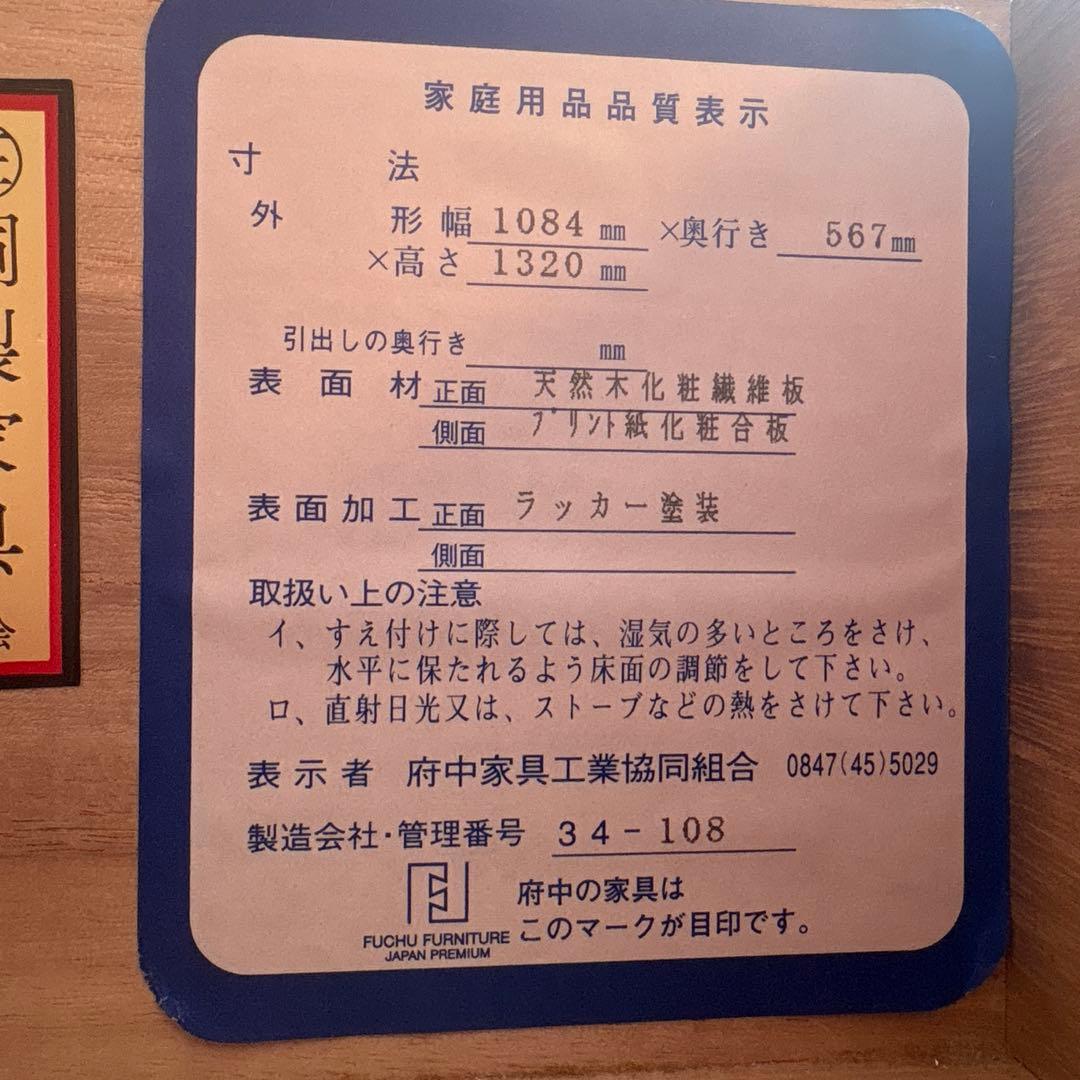 家庭用品品質表示
寸法
外形 幅 1084 mm ×奥行き 567mm
×高さ 1320 mm
引出しの奥行き mm
表面材 正面 天然木化粧繊維板
側面 プリント紙化粧合板
表面加工 正面 ラッカー塗装
側面
取扱い上の注意
イ、すえ付けに際しては、湿気の多いところをさけ、
水平に保たれるよう床面の調節をして下さい。
ロ、直射日光又は、ストーブなどの熱をさけて下さい。
表示者 府中家具工業協同組合 0847(45)5029
製造会社・管理番号 34-108
府中の家具は
このマークが目印です。
FUCHU FURNITURE
JAPAN PREMIUM
製家具